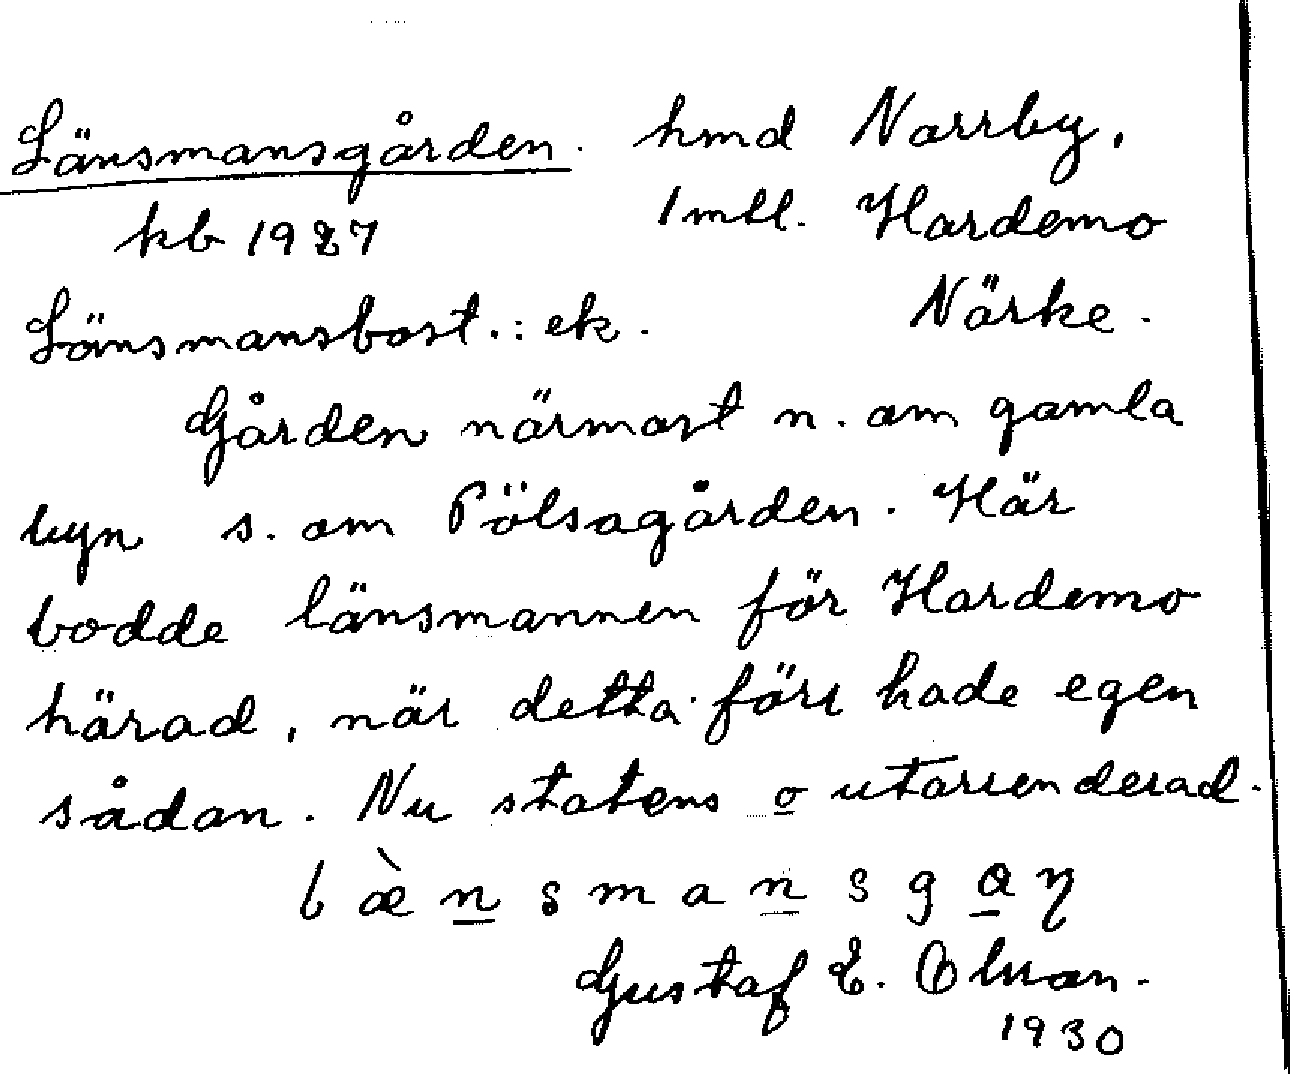 Länsmansgården. hmd Norrby.
kb 1927 1 mtl. Hardemo
Länsmansbost.: ek. Närke.
Gården närmast n. om gamla
byn s. om Pölsagården. Här
bodde länsmannen för Hardemo
härad, när detta förr hade egen
sådan. Nu statens o utarrenderad.
l æ̀ n s m a n s g a η
Gustaf E.
1930